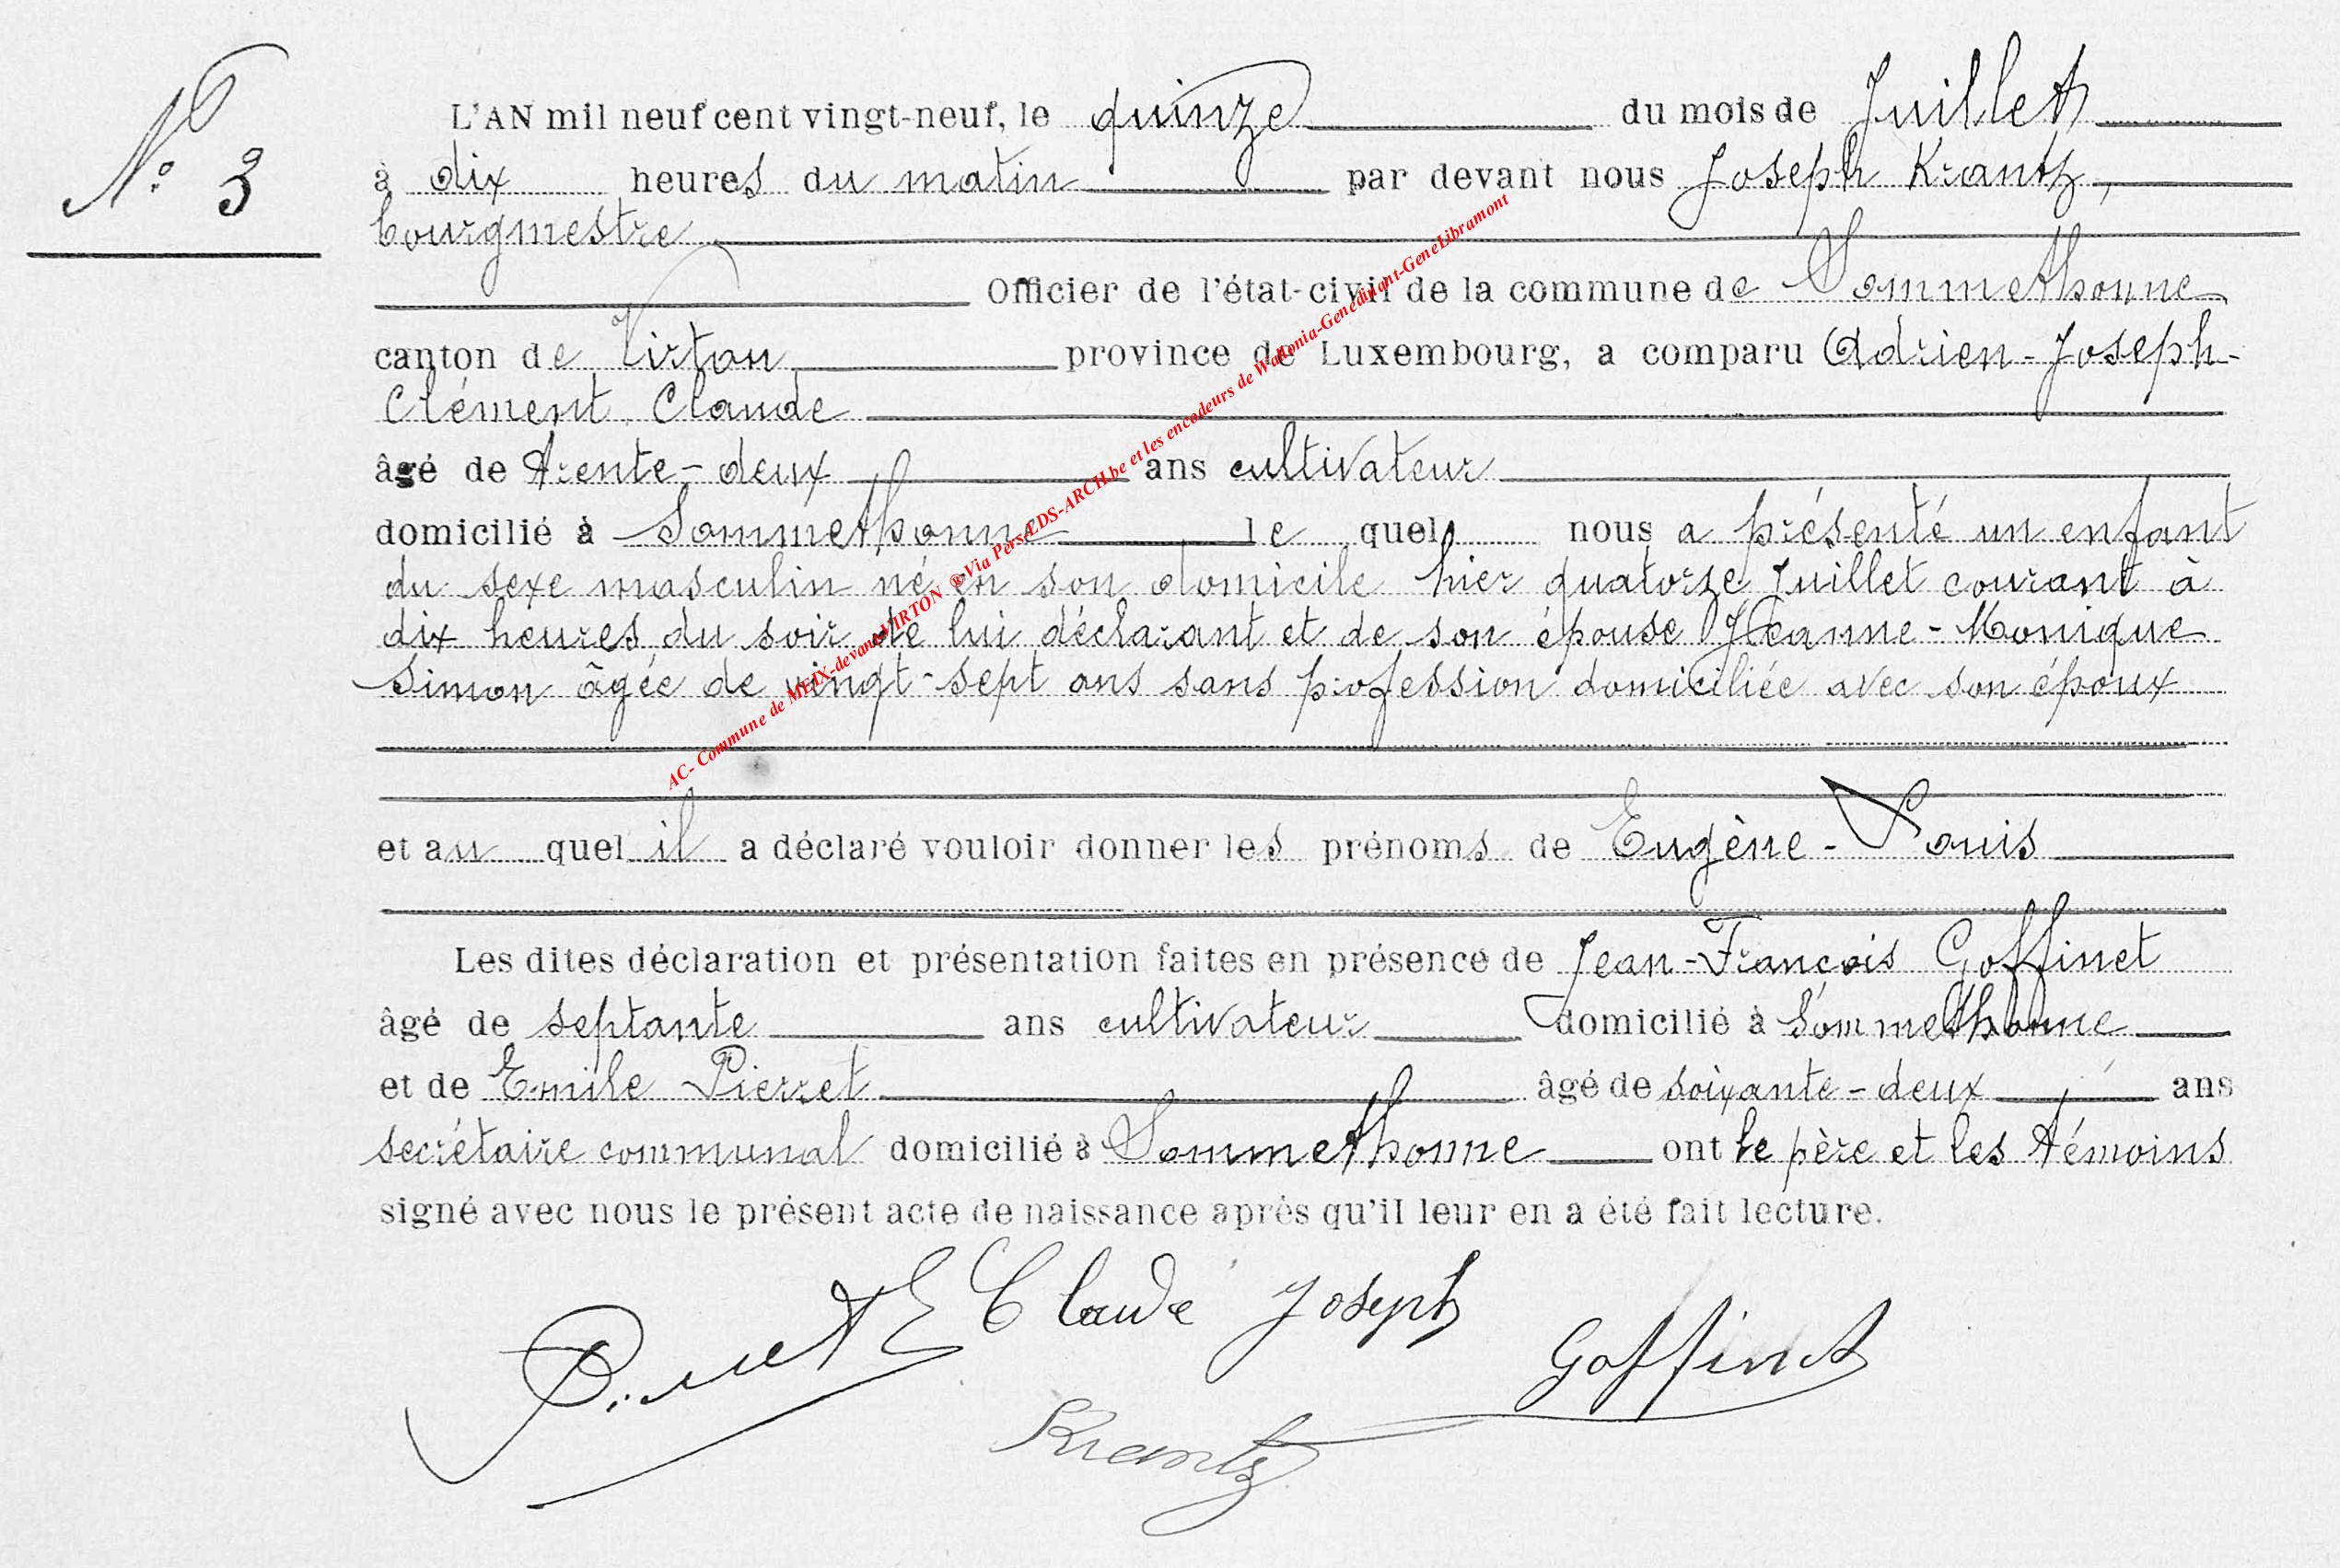 Nº 3
L'AN mil neuf cent vingt-neuf, le quinze du mois de Juillet
à dix heures du matin par devant nous Joseph Krantz,
bourgmestre
Officier de l'état-civil de la commune de Sommethonne
canton de Virton province de Luxembourg, a comparu Adrien-Joseph-
Clément Claude
âgé de trente-deux ans cultivateur
domicilié à Sommethonne le quel nous a présenté un enfant
du sexe masculin né en son domicile hier quatorze Juillet courant à
dix heures du soir de lui déclarant et de son épouse Jeanne-Monique
Simon âgée de vingt-sept ans sans profession domiciliée avec son époux
et au quel il a déclaré vouloir donner les prénoms de Eugène-Louis
Les dites déclaration et présentation faites en présence de Jean-François Goffinet
âgé de septante ans cultivateur domicilié à Sommethonne
et de Emile Pierret âgé de soixante-deux ans
secrétaire communal domicilié à Sommethonne ont le père et les témoins
signé avec nous le présent acte de naissance après qu'il leur en a été fait lecture.
Pierret E Claude Joseph Goffinet
Krantz
AC- Commune de MEIX-devant-VIRTON ®Via Pers LDS-ARCH.be et les encodeurs de Wallonia-Genedinant-GeneLibramont